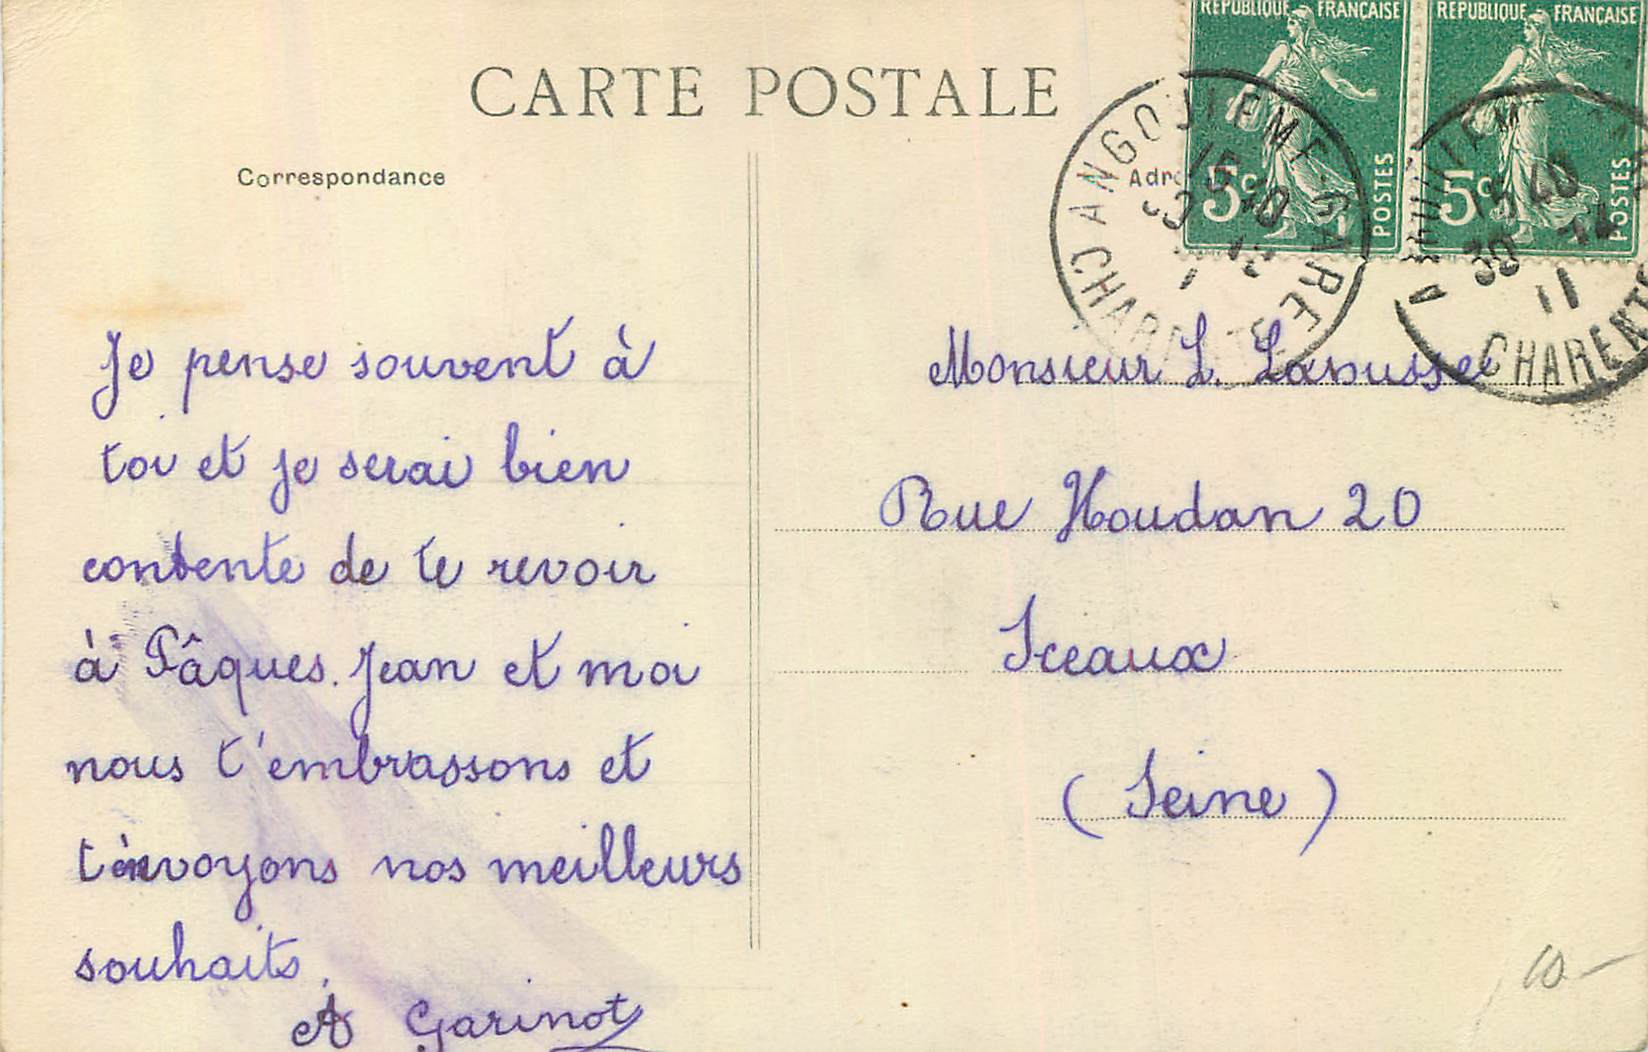 CARTE POSTALE
Correspondance
Je pense souvent à
toi et je serai bien
contente de te revoir
à Pâques. Jean et moi
nous t'embrassons et
t'envoyons nos meilleurs
souhaits.
A Garinot
RÉPUBLIQUE FRANÇAISE
5c POSTES
RÉPUBLIQUE FRANÇAISE
5c POSTES
ANGOULEME-GARE
CHARENTE
15 40
30 12
11
CHARENTE
Monsieur L. Lanusse
Rue Houdan 20
Sceaux
(Seine)
10-